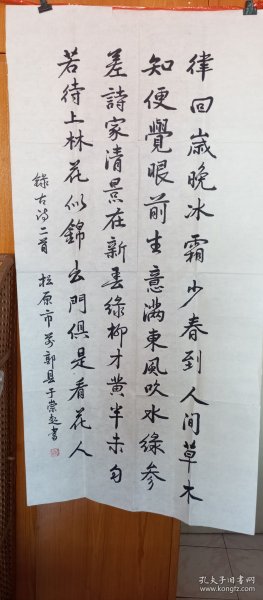 律回歲晚冰霜少春到人间草木
知便覺眼前生意满東風吹水緑参
差詩家清景在新春緑柳才黄半未匀
若待上林花似錦出門俱是看花人
録古诗二首 松原市前郭县于荣起書
孔夫子旧书网